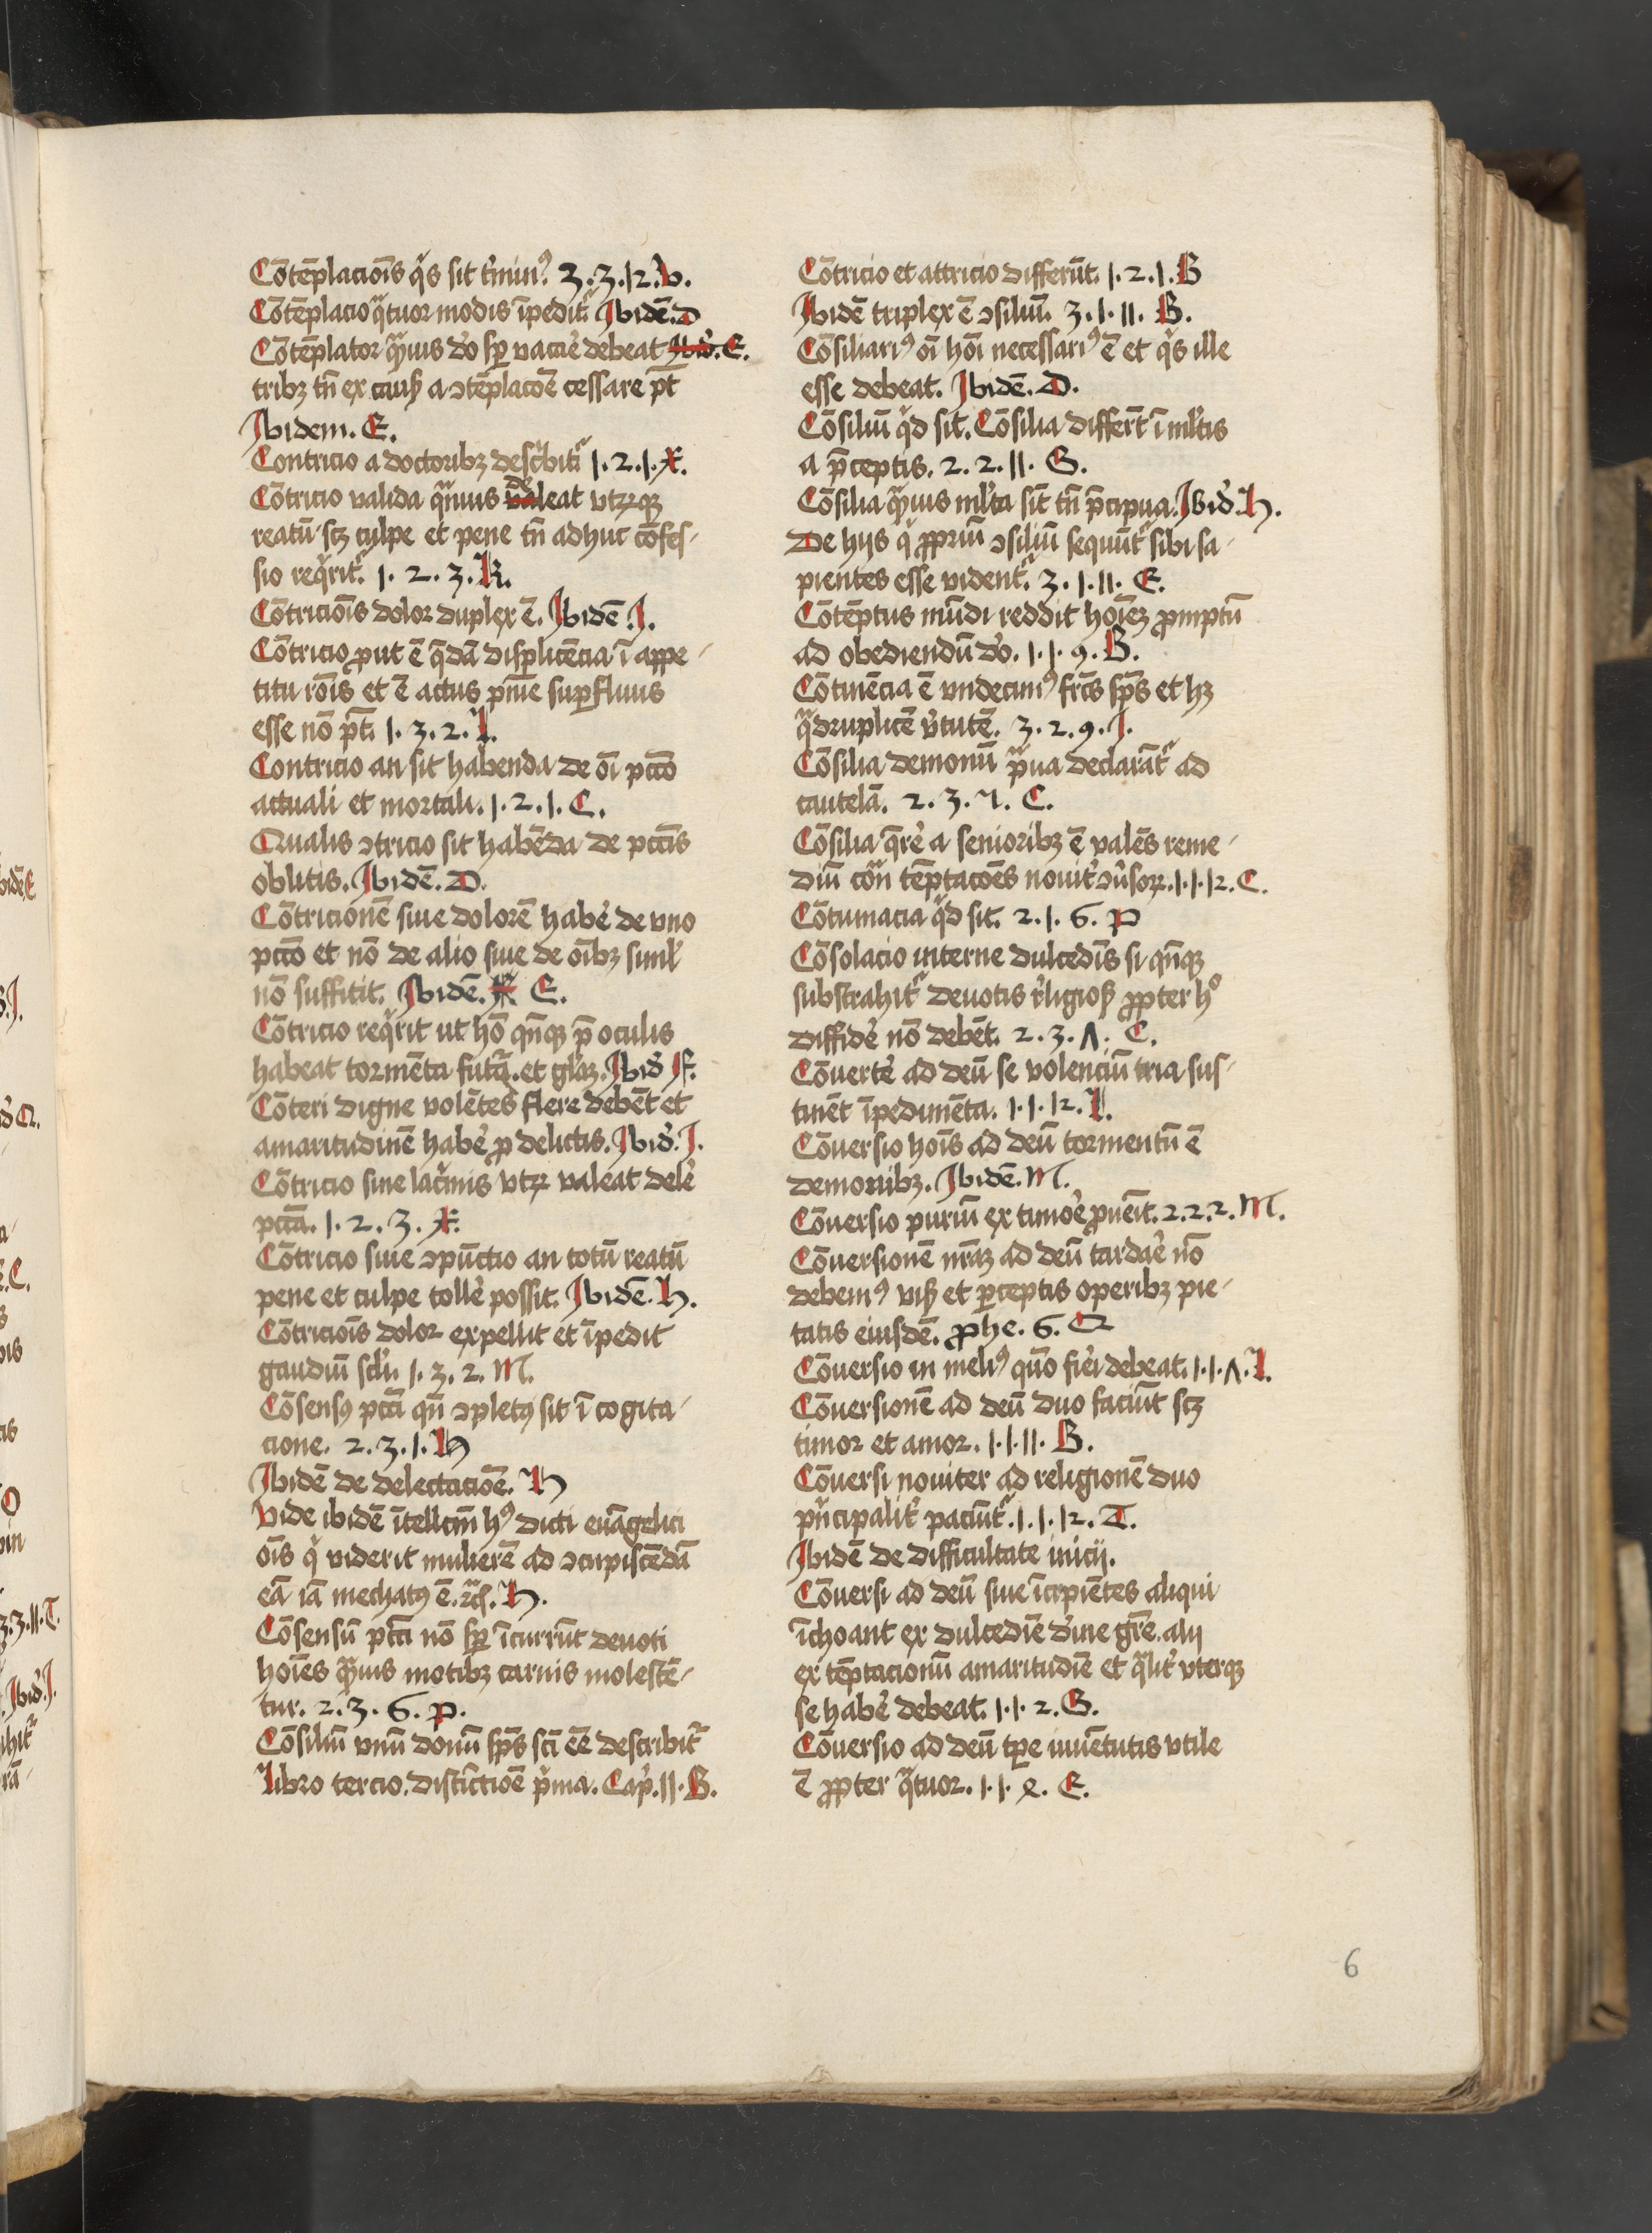 Cōtēplacioīs q̊s sit t'minꝰ 3. 3. 12. V.
Cōtēplacio qᵃtuor modis īpedit᷑ Ibidē. D
Cōtēplator qᵃmuis d'o sp̄ vacar̕e debeat Ibid'. E.
tribꝫ tn̄ ex cauß a ↄtēplacōe cessare pt̄
Ibidem. E.
Contricio a doctoribꝫ desc'bit᷑ 1. 2. 1. X.
Cōtricio valida qᵃmuis deleat vtrꝫqꝫ
reatū scꝫ culpe et pene tn̄ adhuc cōfes-
sio req̊rit᷑. 1. 2. 3. K.
Cōtricioīs dolor duplex ē. Ibidē. I.
Cōtricio ꝓut ē q̄dā displicēcia ī appe-
titu rōis et ē actus pn̄ie suꝑfluus
esse nō pt̄. 1. 3. 2. L.
Contricio an sit habenda de oī pctō
actuali et mortali. 1. 2. 1. C.
Qualis ↄtricio sit habēda de pctīs
oblitis. Ibidē. D.
Cōtricionē siue dolorē habe' de vno
pctō et nō de alio siue de oībꝫ siml'
nō sufficit. Ibidē. E.
Cōtricio req̊rit ut hō qn̄qꝫ p̄ oculis
habeat tormēta futᵃ. et gl'aꝫ. Ibid' F.
Cōteri digne volētes flere debēt et
amaritudinē habe' ꝓ delictis. Ibid'. I.
Cōtricio sine lac'mis vtꝝ valeat dele'
pctā. 1. 2. 3. X.
Cōtricio siue ↄpūctio an totū reatū
pene et culpe tolle' possit. Ibidē. h.
Cōtricioīs dolor expellit et īpedit
gaudiū scl'i. 1. 3. 2. M.
Cōsensꝰ pctī qn̄ ↄpletꝰ sit ī cogita-
cione. 2. 3. 1. H
Ibidē de delectacioē. H
Vide ibidē ītellcm̄ hꝰ dicti euāgelici
oīs q̊ viderit mulierē ad ↄcupiscēdā
eā iā mechatꝰ ē. ⁊c̄. H.
Cōsensū pctī nō sp̄ īcurrūt deuoti
hoīes qᵃmuis motibꝫ carnis molestē-
tur. 2. 3. 6. P.
Cōsiliū vnū donū sp̄s scī ēe describit᷑
Libro tercio. distīctioē p'ma. Cap'. 11. B.
Cōtricio et attricio differūt. 1. 2. 1. B
Ibidē triplex ē ↄsiliū. 3. 1. 11. B.
Cōsiliariꝰ oī hoī necessariꝰ ē et q̊s ille
esse debeat. Ibidē. D.
Cōsiliū q̊d sit. Cōsilia differt̄ ī ml'tis
a p̄ceptis. 2. 2. 11. G.
Cōsilia qᵃmuis ml'ta sīt tn̄ p̄cipua. Ibid'. h.
De hijs q̊ ꝓpriū ↄsiliū sequūt᷑ sibi sa-
pientes esse vident᷑. 3. 1. 11. E.
Cōtēptus mūdi reddit hoīeꝫ ꝓmptū
ad obediendū d'o. 1. 1. 9. B.
Cōtinēcia ē vndecimꝰ frc̄s sp̄s et hꝫ
qᵃdruplicē v'tutē. 3. 2. 9. I.
Cōsilia demonū pᵃua declarāt᷑ ad
cautelā. 2. 3. 7. C.
Cōsilia q̄re' a senioribꝫ ē valēs reme-
diū cōn̄ tēptacōes nouit' ↄu'soꝝ. 1. 1. 12. C.
Cōtumacia q̊d sit. 2. 1. 6. P
Cōsolacio interne dulcedīs si qn̄qꝫ
substrahit᷑ deuotis r'ligioß ꝓpter hº
diffide' nō debēt. 2. 3. Λ. C.
Cōuerte' ad deū se volenciū tria sus-
tinēt īpedimēta. 1. 1. 12. L.
Cōuersio hoīs ad deū tormentū ē
demonibꝫ. Ibidē. M.
Cōuersio puriū ex timoe' ꝓueīt. 2. 2. 2. M.
Cōuersionē nr̄aꝫ ad deū tardae' nō
debemꝰ viß et ꝑceptis operibꝫ pie-
tatis eiusdē. ꝓhe. 6. Q
Cōuersio in meliꝰ quō fie'i debeat. 1. 1. Λ. L.
Cōuersionē ad deū duo faciūt scꝫ
timor et amor. 1. 1. 11. B.
Cōuersi nouiter ad religionē duo
pn̄cipalit' paciūt᷑. 1. 1. 12. T.
Ibidē de difficultate inicij.
Cōuersi ad deū siue īcipiētes aliqui
īchoant ex dulcedīe d'iuīe gr̄e. alij
ex tēptacionū amaritudīe et qᵃlit' vterqꝫ
se habe' debeat. 1. 1. 2. G.
Cōuersio ad deū tꝑe iuuētutis vtile
ē ꝓpter qᵃtuor. 1. 1. 8. E.
6